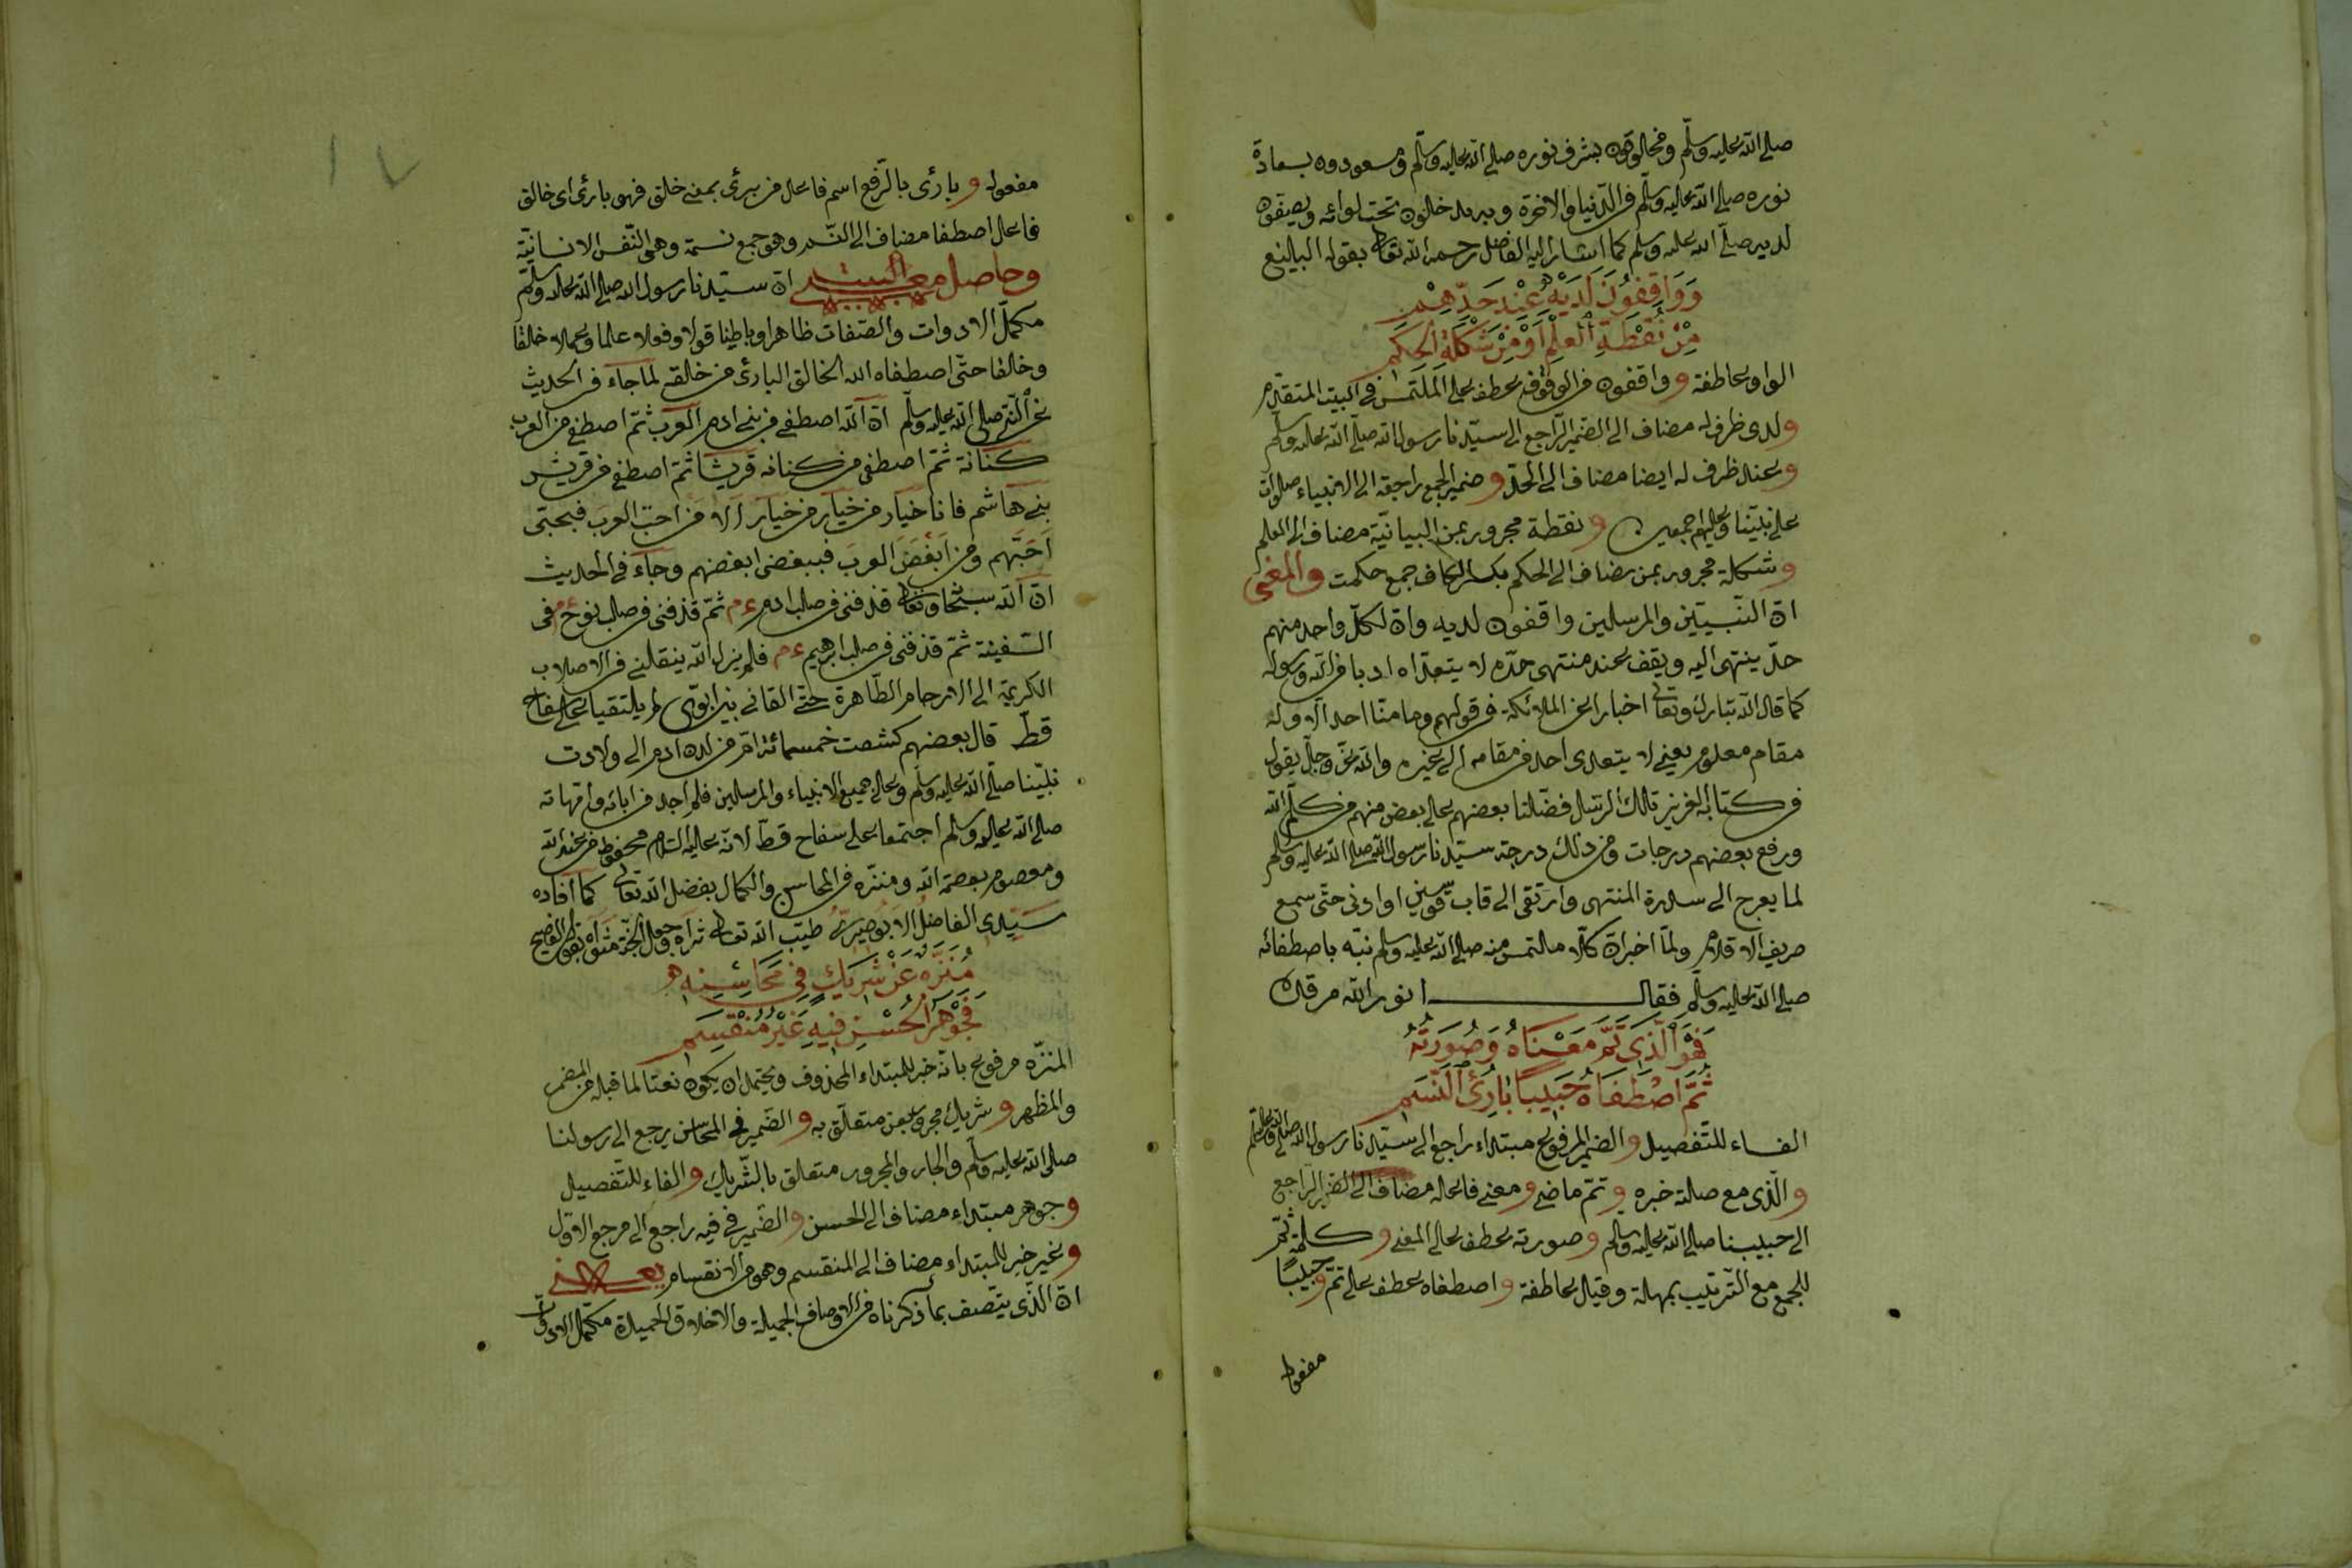 صلى الله عليه وسلم ومخلوقون بشرف نوره صلى الله عليه وسلم ومسعودون بسعادة
نوره صلى الله عليه وسلم فى الدنيا والاخرة ويدخلون تحت لوائه ويصيفون
لديه صلى الله عليه وسلم كما اشار اليه الفاضل رحمه الله تعالى بقوله البليغ
وَوَاقِفُونَ لَدَيْهِ عِنْدَ حَدِّهِمْ
مِنْ نُقْطَةِ الْعِلْمِ اَوْ مِنْ شَكْلَةِ الْحِكَمِ
الواو عاطفة و واقفون من الوقوف عطف على الملتمس فى البيت المتقدم
و لدى ظرف له مضاف الى الضمير الراجع الى سيدنا رسول الله صلى الله عليه وسلم
و عند ظرف له ايضا مضاف الى الحد و ضمير الجمع راجعة الى الانبياء صلوات
على نبينا وعليهم اجمعين و نقطة مجرور بمن البيانية مضاف الى العلم
و شكلة مجرور بمن مضاف الى الحكم بكسر الكاف جمع حكمت والمعنى
ان النبيين والمرسلين واقفون لديه وان لكل واحد منهم
حد ينتهى اليه ويقف عند منتهى حده لا يتعداه ادبا من الله ورسوله
كما قال الله تبارك وتعالى اخبارا عن الملائكة فى قولهم وما منا احد الا وله
مقام معلوم يعنى لا يتعدى احد من مقامه الى غيره والله عز وجل يقول
فى كتابه العزيز تلك الرسل فضلنا بعضهم على بعض منهم من كلم الله
ورفع بعضهم درجات ومن ذلك درجة سيدنا رسول الله صلى الله عليه وسلم
لما يعرج الى سدرة المنتهى وارتقى الى قاب قوسين او ادنى حتى سمع
صريف الاقلام ولما اخبر ان كلا ملتمس منه صلى الله عليه وسلم نبه باصطفائه
صلى الله عليه وسلم فقال نور الله مرقده
فَهْوَ الَّذِى تَمَّ مَعْنَاهُ وَصُورَتُهُ
ثُمَّ اصْطَفَاهُ حَبِيبًا بَارِئُ النَّسَمِ
الفاء للتفصيل و الضمير المرفوع مبتداء راجع الى سيدنا رسول الله صلى الله عليه وسلم
و الذى مع صلته خبره و تم ماضى و معنى فاعله مضاف الى الضمير الراجع
الى حبيبنا صلى الله عليه وسلم و صورته عطف على المعنى و كلمة ثم
للجمع مع الترتيب بمهلة وقيل عاطفة و اصطفاه عطف على تم و حبيبا
مفعوله
١٧
مفعوله و بارئ بالرفع اسم فاعل من برئ بمعنى خلق فهو بارئ اى خالق
فاعل اصطفا مضاف الى النسم وهو جمع نسمة وهى النفس الانسانية
وحاصل معنى البيت ان سيدنا رسول الله صلى الله عليه وسلم
مكمل الادوات والصفات ظاهرا وباطنا قولا وفعلا علما وعملا خلقا
وخلقا حتى اصطفاه الله الخالق البارئ من خلقه لما جاء فى الحديث
عن النبى صلى الله عليه وسلم ان الله اصطفى من بنى ادم العرب ثم اصطفى من العرب
كنانة ثم اصطفى من كنانه قريشا ثم اصطفى من قريش
بنى هاشم فانا خيار من خيار من خيار الا من احب العرب فبحبى
احبهم ومن ابغض العرب فببغضى ابغضهم وجاء فى الحديث
ان الله سبحانه وتعالى قذفنى فى صلب ادم ع م ثم قذفنى فى صلب نوح ع م فى
السفينة ثم قذفنى فى صلب ابرهيم ع م فلم يزل الله ينقلنى من الاصلاب
الكريمة الى الارحام الطاهرة حتى القانى بين ابوى لم يلتقيا على سفاح
قط قال بعضهم كشفت خمسمائة ام من لدن ادم الى ولادت
نبينا صلى الله عليه وسلم وعلى جميع الانبياء والمرسلين فلم اجد من ابائه وامهاته
صلى الله عليه وسلم اجتمعا على سفاح قط لانه عليه السلام محفوظ من عند الله
ومعصوم بعصمة الله ومنزه فى المحاسن والكمال بفضل الله تعالى كما افاده
سيدى الفاضل الابوصيرى طيب الله تعالى ثراه وجعل الجنة مثواه بقوله الفصيح
مُنَزَّهٌ عَنْ شَرِيكٍ فِى مَحَاسِنِهِ
فَجَوْهَرُ الْحُسْنِ فِيهِ غَيْرُ مُنْقَسِمِ
المنزه مرفوع بانه خبر للمبتداء المحذوف ويحتمل ان يكون نعتا لما قبله من المضمر
والمظهر و شريك مجرور بعن متعلق به و الضمير فى المحاسن يرجع الى رسولنا
صلى الله عليه وسلم والجار والمجرور متعلق بالشريك و الفاء للتفصيل
و جوهر مبتداء مضاف الى الحسن و الضمير فى فيه راجع الى مرجع الاول
و غير خبر للمبتداء مضاف الى المنقسم وهو من الانقسام يعنى
ان الذى يتصف بما ذكرناه من الاوصاف الجميلة والاخلاق الحميدة مكمل الادوات